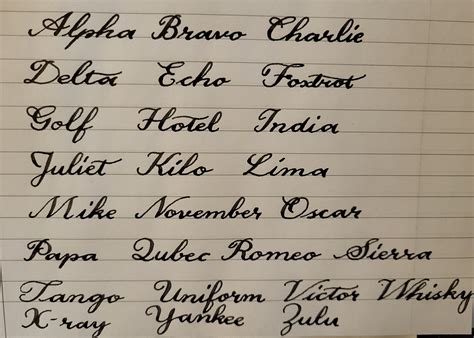 Alpha Bravo Charlie
Delta Echo Foxtrot
Golf Hotel India
Juliet Kilo Lima
Mike November Oscar
Papa Qubec Romeo Sierra
Tango Uniform Victor Whisky
X-ray Yankee Zulu